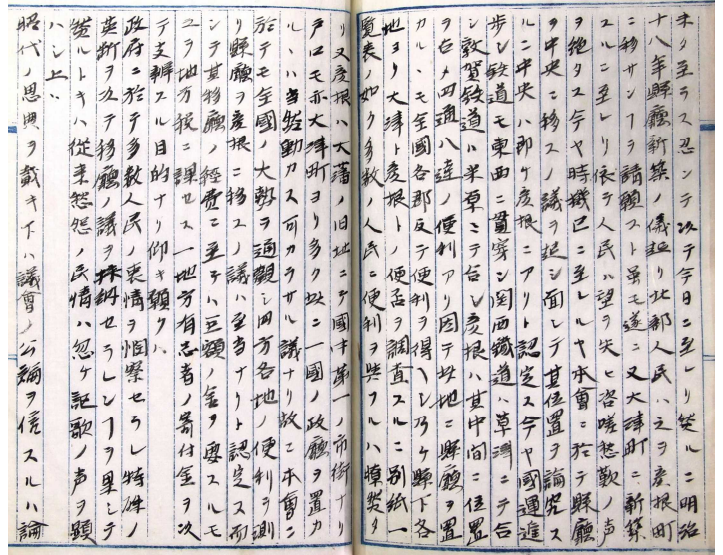 未タ至ラス忍ンテ以テ今日ニ至レリ然ルニ明治
十八年縣廳新築ノ儀起リ北部人民ハ之ヲ彦根町
ニ移サンヿヲ請願スト雖モ遂ニ又大津町ニ新築
スルニ至レリ依テ人民ハ望ヲ失ヒ咨嗟愁歎ノ声
ヲ絶タス今ヤ時機已ニ至レルヤ本會ニ於テ縣廳
ヲ中央ニ移スノ議ヲ起シ而シテ其位置ヲ論究ス
ルニ中央ハ即ケ彦根ニアリト認定ス今ヤ國運進
歩シ鉄道モ東西ニ貫穿シ関西鐵道ハ草津ニテ合
シ敦賀鉄道ハ米原ニテ合シ彦根ハ其中間ニ位置
ヲ占メ四通八達ノ便利アリ因テ此地ニ縣廳ヲ置
カルヽモ全國各郡反テ便利ヲ得ヘシ乃ケ縣下各
地ヨリ大津ト彦根トノ便否ヲ調査スルニ別紙一
覧表ノ如ク多数ノ人民ニ便利ヲ與フルハ慎然タ
リ又彦根ハ大藩ノ旧地ニテ國中第一ノ市街ナリ
戸口モ亦大津町ヨリ多ク此ニ一國ノ政廳ヲ置カ
ルヽハ当然動カス可カラサル議ナリ故ニ本會ニ
於テモ全國ノ大勢ヲ通観シ四方各地ノ便利ヲ測
リ縣廳ヲ彦根ニ移スノ議ハ至当ナリト認定ス而
シテ其移廳ノ経費ニ至テハ巨額ノ金ヲ要スルモ
之ヲ地方税ニ課セス一地方有志者ノ寄付金ヲ以
テ支辨スル目的ナリ仰キ願クハ
政府ニ於テ多数人民ノ衷情ヲ惻察セラレ特殊ノ
英断ヲ以テ移廳ノ議ヲ採納セラレンヿヲ果シテ
然ルトキハ従来怨恨ノ民情ハ忽ケ謳歌ノ声ヲ顕
ハシ上ハ
昭代ノ恩典ヲ戴キ下ハ議會ノ公論ヲ信スルハ論